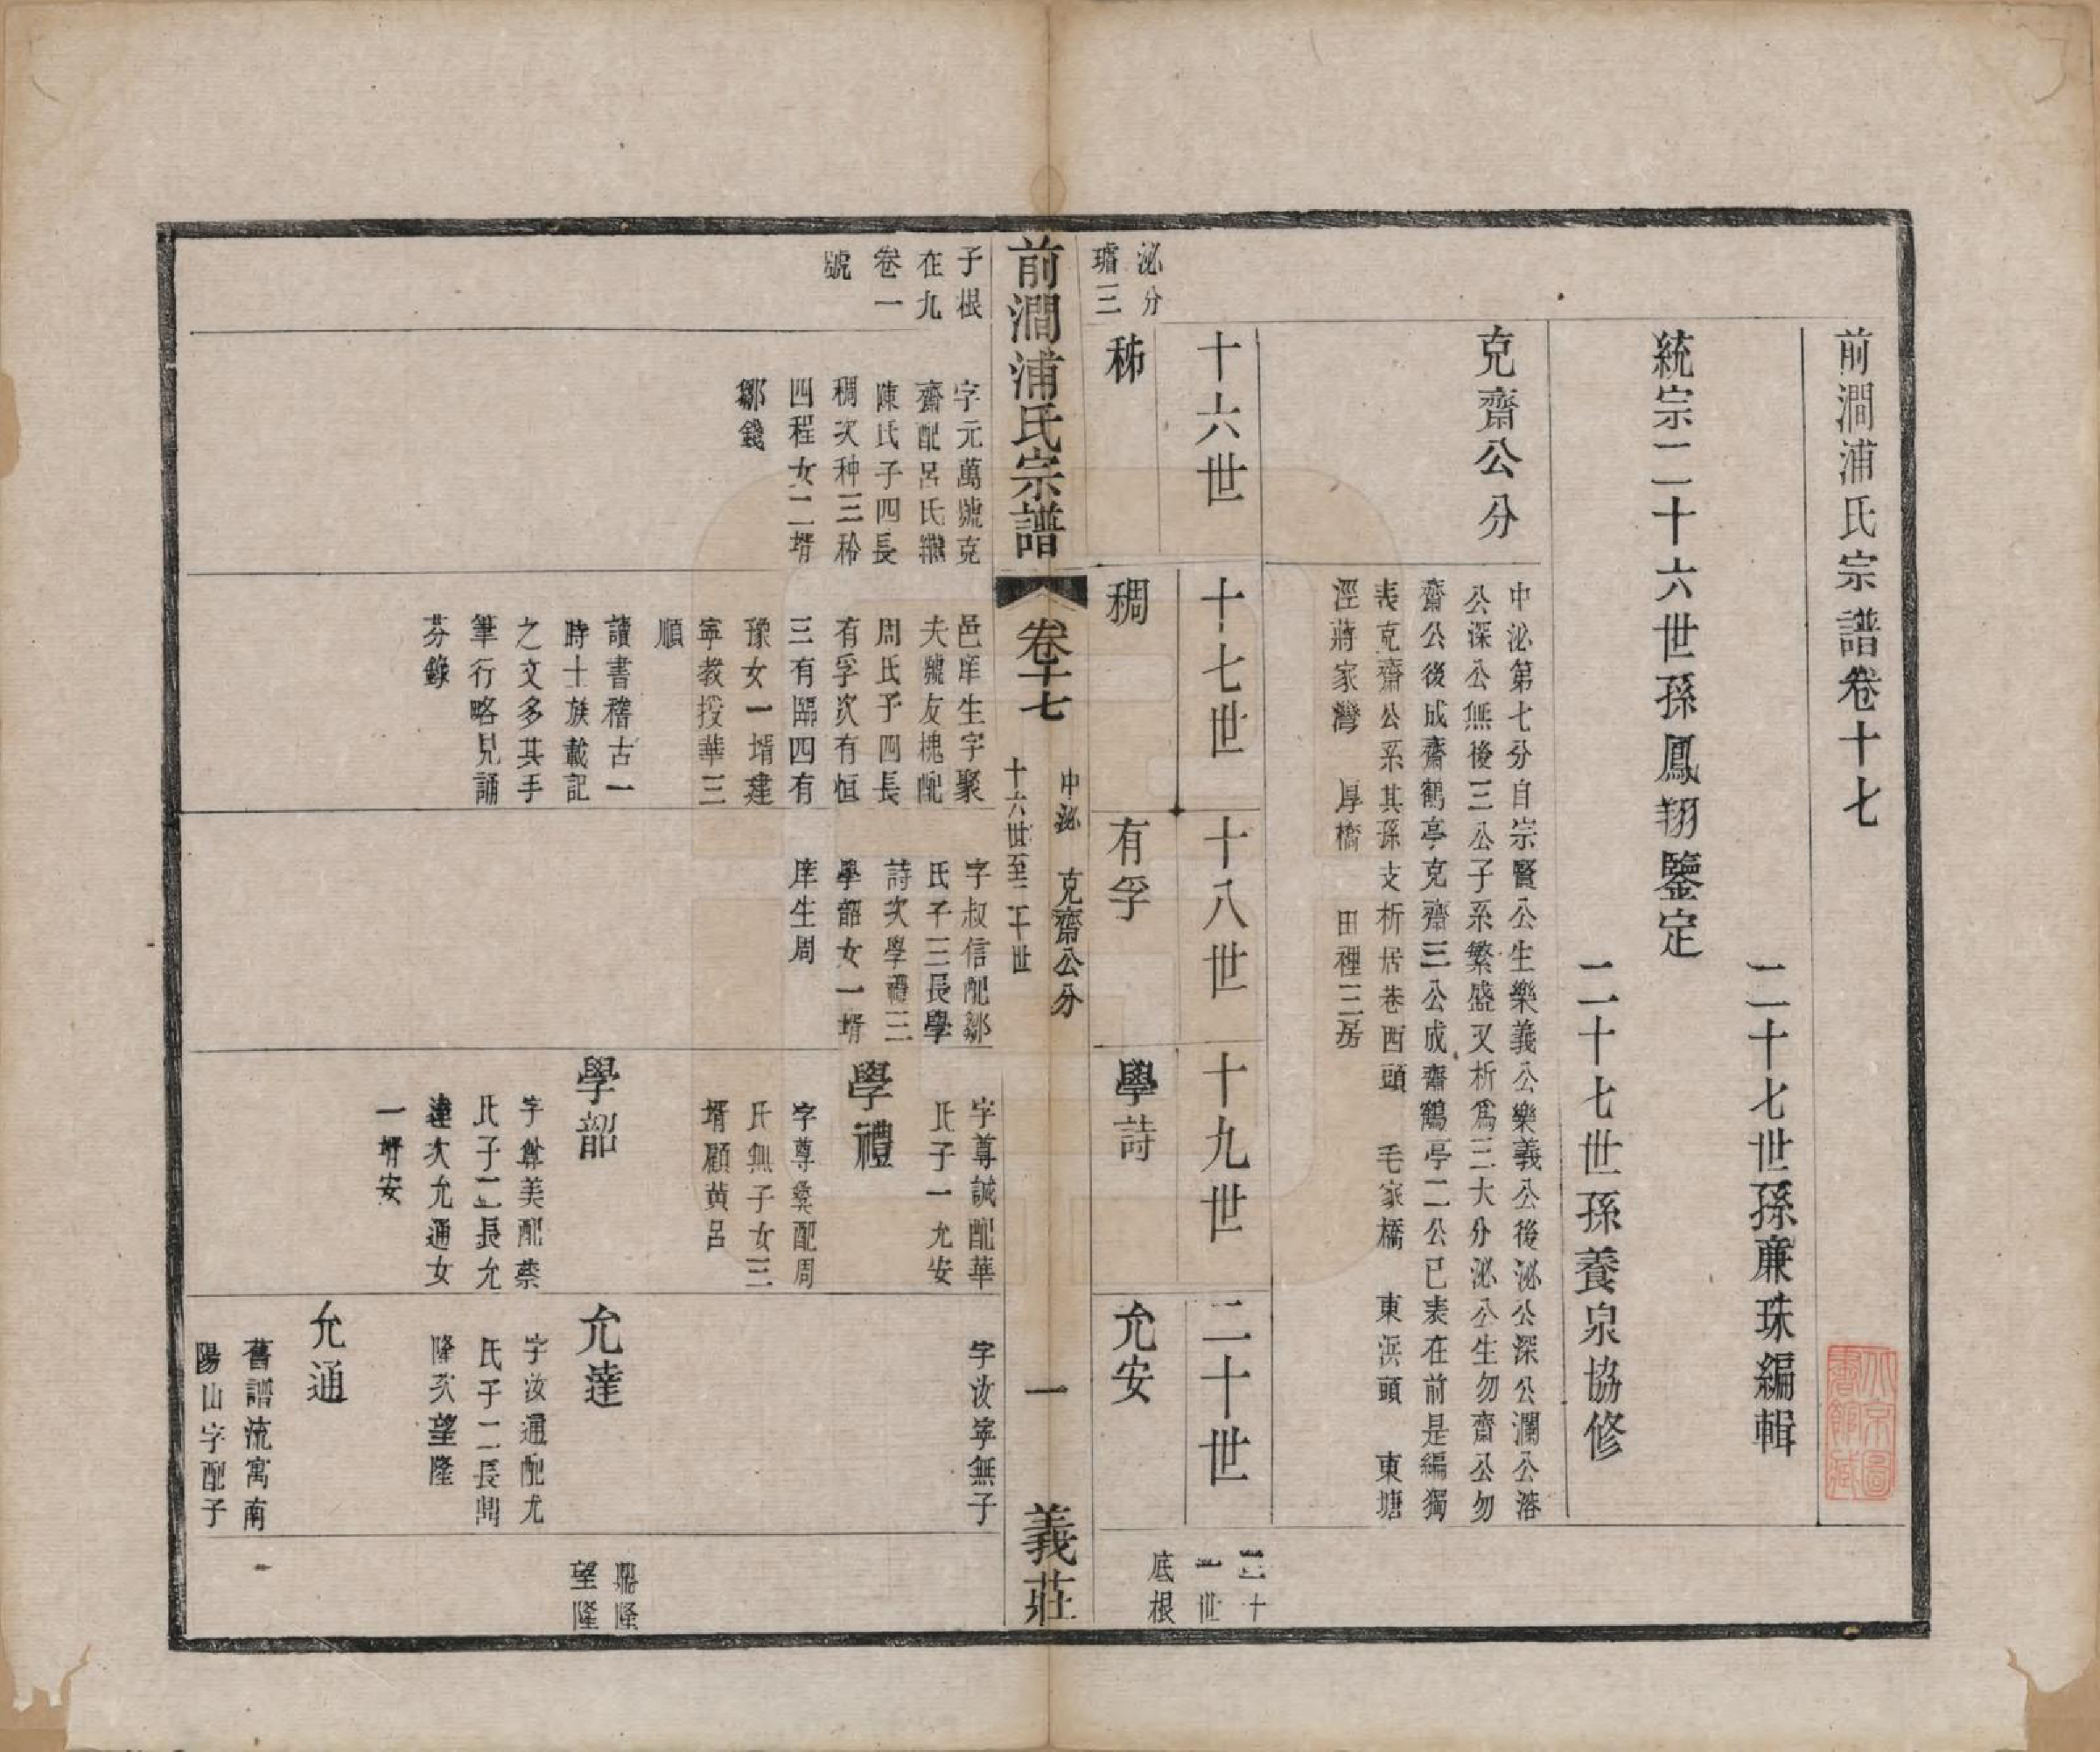 前澗浦氏宗譜卷十七
二十七世孫廉珠編輯
統宗二十六世孫鳳翔鑒定
二十七世孫養泉協修
克齋公分
中泌第七分自宗賢公生樂義公樂義公後泌公深公瀾公溶
公深公無後三公子系繁盛又析爲三大分泌公生勿齋公勿
齋公後成齋鶴亭克齋三公成齋鶴亭二公已表在前是編獨
表克齋公系其孫支析居巷西頭 毛家橋 東浜頭 東塘
涇蔣家灣 厚橋 田裡三房
十六世
十七世
十八世
十九世
二十世
二十
一世
底根
泌分
璿三
秭
稠
有孚
學詩
允安
前澗浦氏宗譜
卷十七
中泌 克齋公分
十六世至二十世
一
義莊
子根
在九
卷一
號
字元萬號克
齋配呂氏繼
陳氏子四長
稠次种三秴
四程女二壻
鄒錢
邑庠生字聚
夫號友槐配
周氏子四長
有孚次有恒
三有臨四有
豫女一壻建
寧教授華三
順
讀書稽古一
時士族載記
之文多其手
筆行略見誦
芬錄
字叔信配鄒
氏子三長學
詩次學禮三
學韶女一壻
庠生周
字尊誠配華
氏子一允安
學禮
字尊彝配周
氏無子女三
壻顧黃呂
學韶
字舜美配蔡
氏子二長允
達次允通女
一壻安
字汝寧無子
允達
字汝通配尤
氏子二長鬺
隆次望隆
允通
舊譜流寓南
陽山字配子
望隆